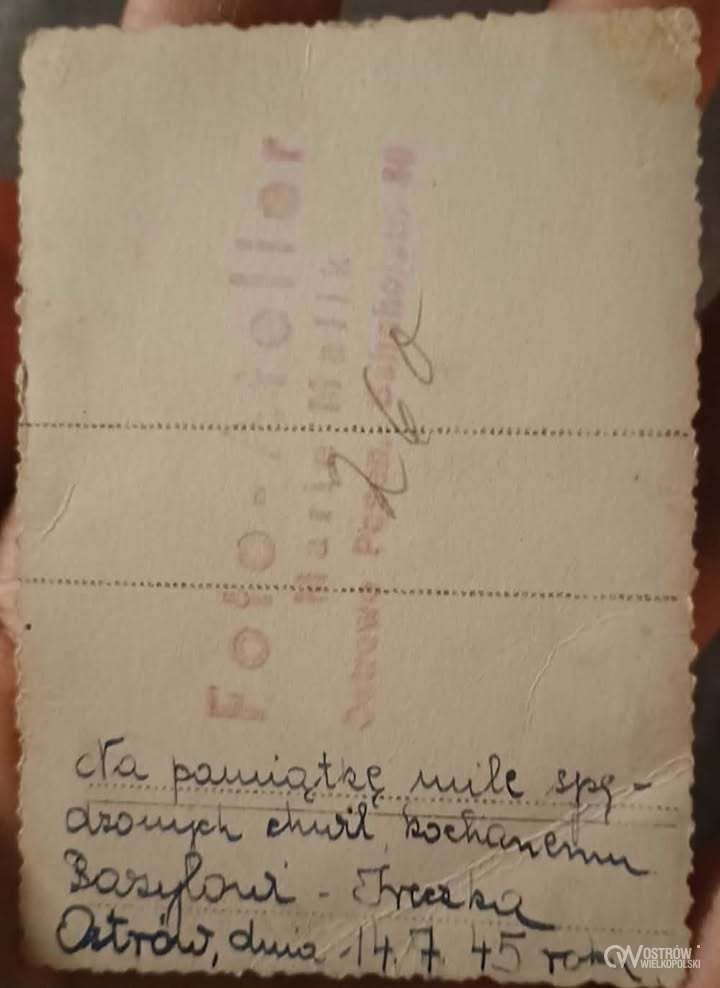 Foto-Atelier
Marie Malik
Ostrowo
260
Na pamiątkę mile spę-
dzonych chwil, kochanemu
Bazylowi - Irezka
Ostrów, dnia 14.7.45 roku
WOSTRÓW
WIELKOPOLSKI